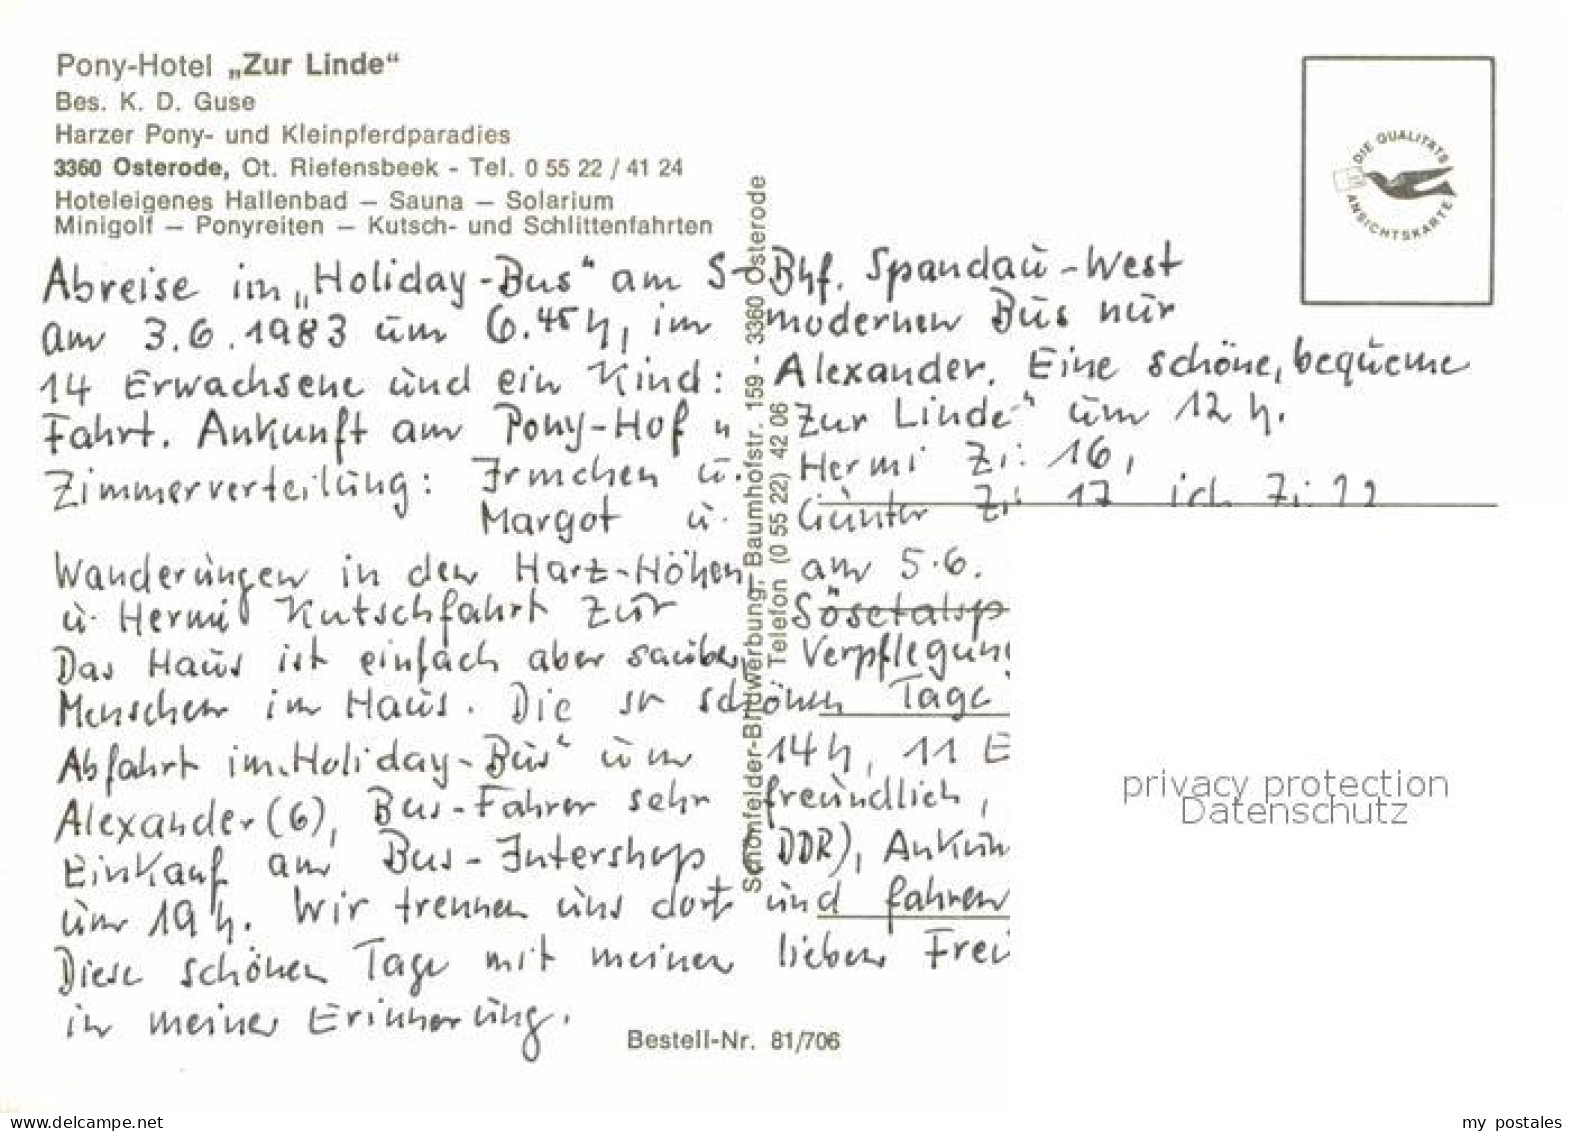 Pony-Hotel „Zur Linde“
Bes. K. D. Guse
Harzer Pony- und Kleinpferdparadies
3360 Osterode, Ot. Riefensbeek - Tel. 0 55 22 / 41 24
Hoteleigenes Hallenbad – Sauna – Solarium
Minigolf – Ponyreiten – Kutsch- und Schlittenfahrten
DIE QUALITÄTS ANSICHTSKARTE
Abreise im „Holiday-Bus“ am S-Bhf. Spandau-West
am 3.6.1983 um 6.45 h, im modernen Bus nur
14 Erwachsene und ein Kind: Alexander. Eine schöne, bequeme
Fahrt. Ankunft am Pony-Hof „Zur Linde“ um 12 h.
Zimmerverteilung: Irmchen u. Hermi Zi: 16,
Margot u. Günter Zi: 17 ich Zi: 22
Wanderungen in den Harz-Höhen am 5.6.
u. Hermi Kutschfahrt zur Sösetalsp
Das Haus ist einfach aber sauber Verpflegun
Menschen im Haus. Die schönen Tage
Abfahrt im „Holiday-Bus“ um 14 h, 11 E
Alexander (6), Bus-Fahrer sehr freundlich,
Einkauf am Bus-Intershop DDR), Ankun
um 19 h. Wir trennen uns dort und fahren
Diese schönen Tage mit meinen lieben Freu
in meiner Erinnerung.
Schönfelder-Bildwerbung, Baumhofstr. 159 - 3360 Osterode
Telefon (0 55 22) 42 06
Bestell-Nr. 81/706
privacy protection
Datenschutz
www.delcampe.net
my_postales